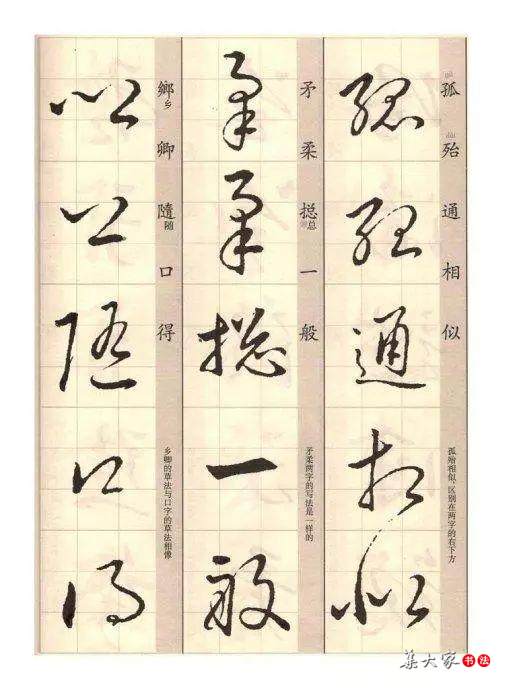 孤殆通相似
孤殆相似，区别在两字的右下方
孤殆通相似
矛柔摠总一般
矛柔两字的写法是一样的
矛柔摠一般
鄉乡卿隨随口得
乡卿的草法与口字的草法相像
鄉卿隨口得
集大家书法